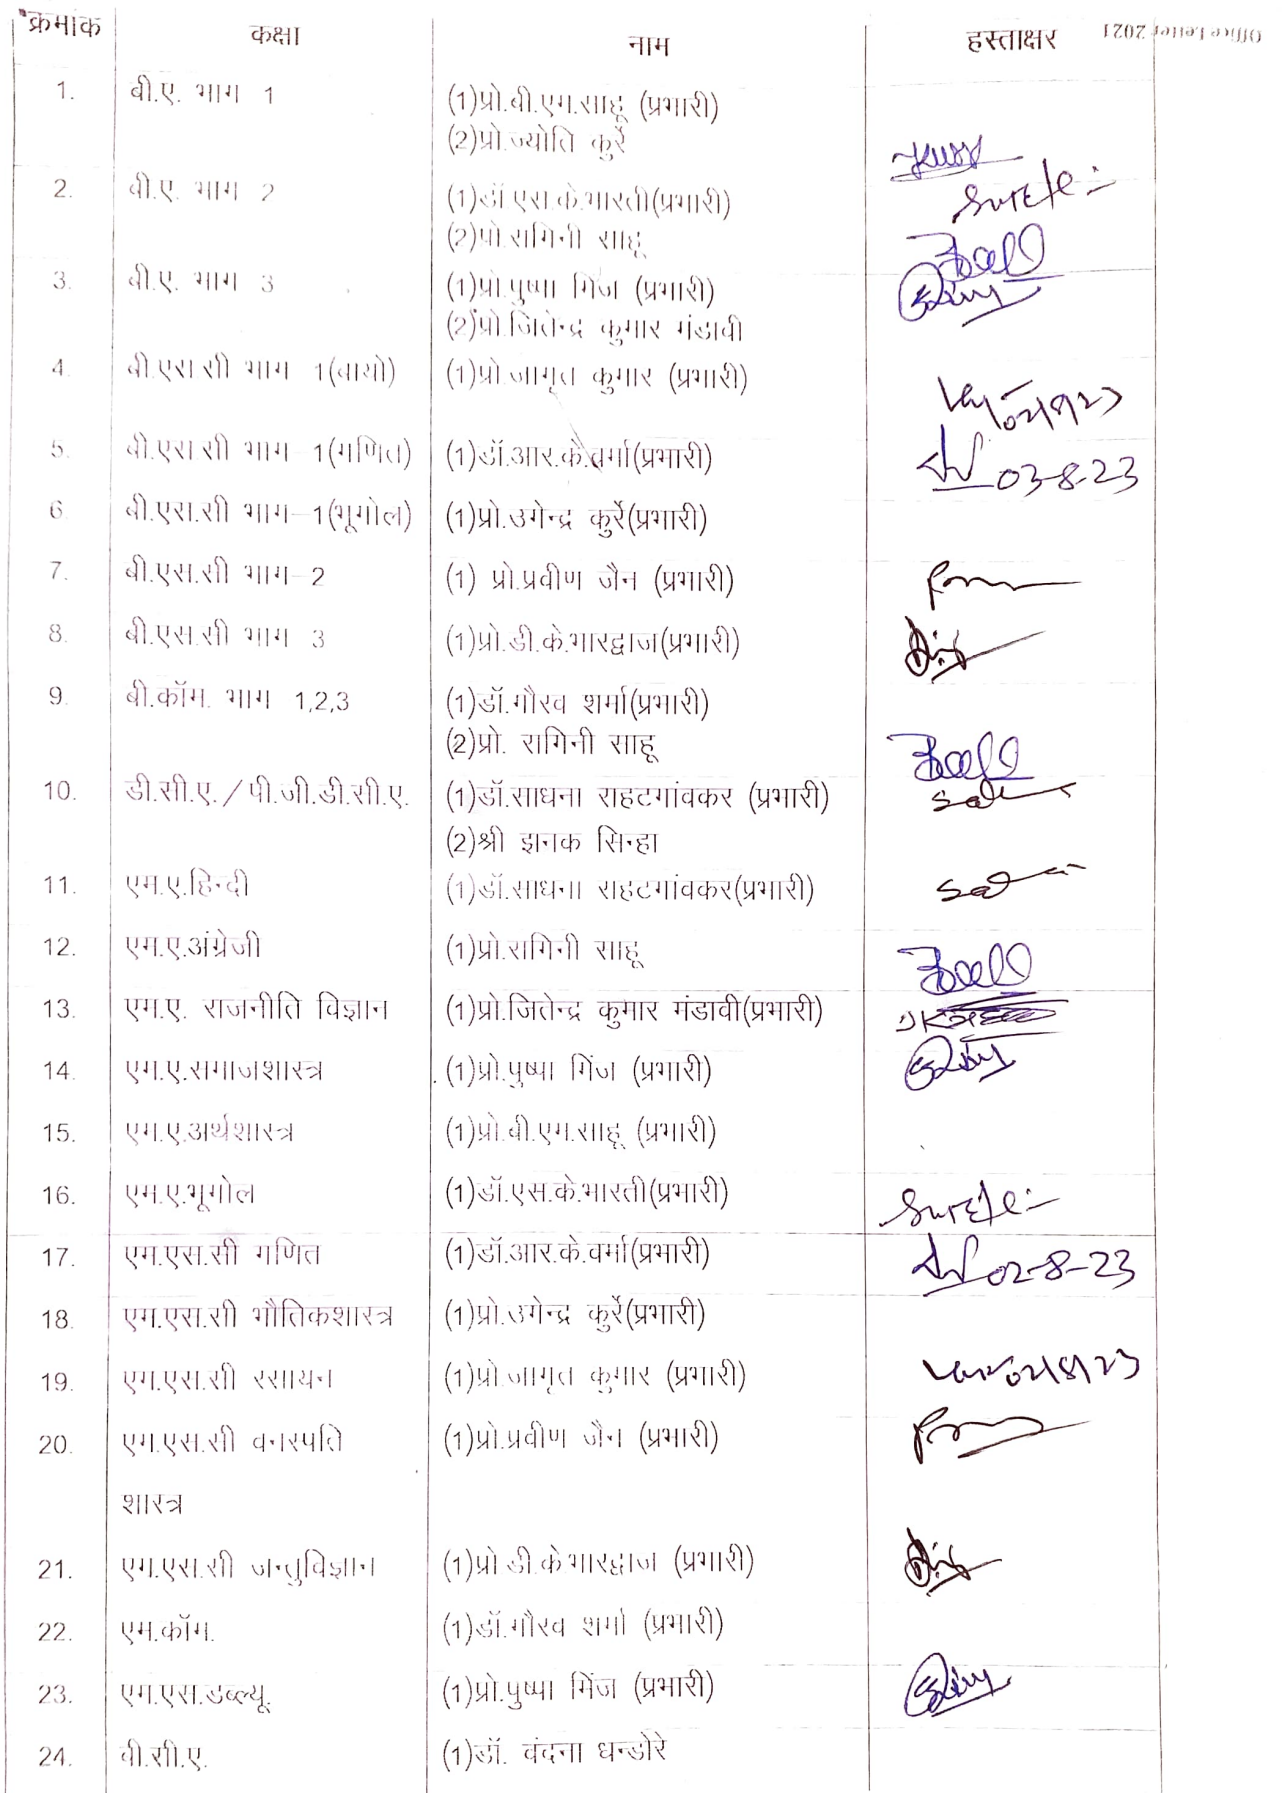 क्रमांक कक्षा नाम हस्ताक्षर
Office Letter 2021
1. बी.ए. भाग 1 (1)प्रो.बी.एम.साहू (प्रभारी)
(2)प्रो.ज्योति कुर्रे
2. बी.ए. भाग 2 (1)डॉ.एस.के.भारती(प्रभारी)
(2)प्रो.रागिनी साहू
3. बी.ए. भाग 3 (1)प्रो.पुष्पा मिंज (प्रभारी)
(2)प्रो.जितेन्द्र कुमार मंडावी
4. बी.एस.सी भाग 1(बायो) (1)प्रो.जागृत कुमार (प्रभारी)
02/8/23
5. बी.एस.सी भाग 1(गणित) (1)डॉ.आर.के.वर्मा(प्रभारी) 03-8-23
6. बी.एस.सी भाग-1(भूगोल) (1)प्रो.उगेन्द्र कुर्रे(प्रभारी)
7. बी.एस.सी भाग-2 (1) प्रो.प्रवीण जैन (प्रभारी)
8. बी.एस.सी भाग 3 (1)प्रो.डी.के.भारद्वाज(प्रभारी)
9. बी.कॉम. भाग 1,2,3 (1)डॉ.गौरव शर्मा(प्रभारी)
(2)प्रो. रागिनी साहू
10. डी.सी.ए./पी.जी.डी.सी.ए. (1)डॉ.साधना राहटगांवकर (प्रभारी)
(2)श्री झनक सिन्हा
11. एम.ए.हिन्दी (1)डॉ.साधना राहटगांवकर(प्रभारी)
12. एम.ए.अंग्रेजी (1)प्रो.रागिनी साहू
13. एम.ए. राजनीति विज्ञान (1)प्रो.जितेन्द्र कुमार मंडावी(प्रभारी)
14. एम.ए.समाजशास्त्र (1)प्रो.पुष्पा मिंज (प्रभारी)
15. एम.ए.अर्थशास्त्र (1)प्रो.बी.एम.साहू (प्रभारी)
16. एम.ए.भूगोल (1)डॉ.एस.के.भारती(प्रभारी)
17. एम.एस.सी गणित (1)डॉ.आर.के.वर्मा(प्रभारी) 02-8-23
18. एम.एस.सी भौतिकशास्त्र (1)प्रो.उगेन्द्र कुर्रे(प्रभारी)
19. एम.एस.सी रसायन (1)प्रो.जागृत कुमार (प्रभारी) 02/8/23
20. एम.एस.सी वनस्पति (1)प्रो.प्रवीण जैन (प्रभारी)
शास्त्र
21. एम.एस.सी जन्तुविज्ञान (1)प्रो.डी.के.भारद्वाज (प्रभारी)
22. एम.कॉम. (1)डॉ.गौरव शर्मा (प्रभारी)
23. एम.एस.डब्ल्यू. (1)प्रो.पुष्पा मिंज (प्रभारी)
24. बी.सी.ए. (1)डॉ. वंदना धन्डोरे